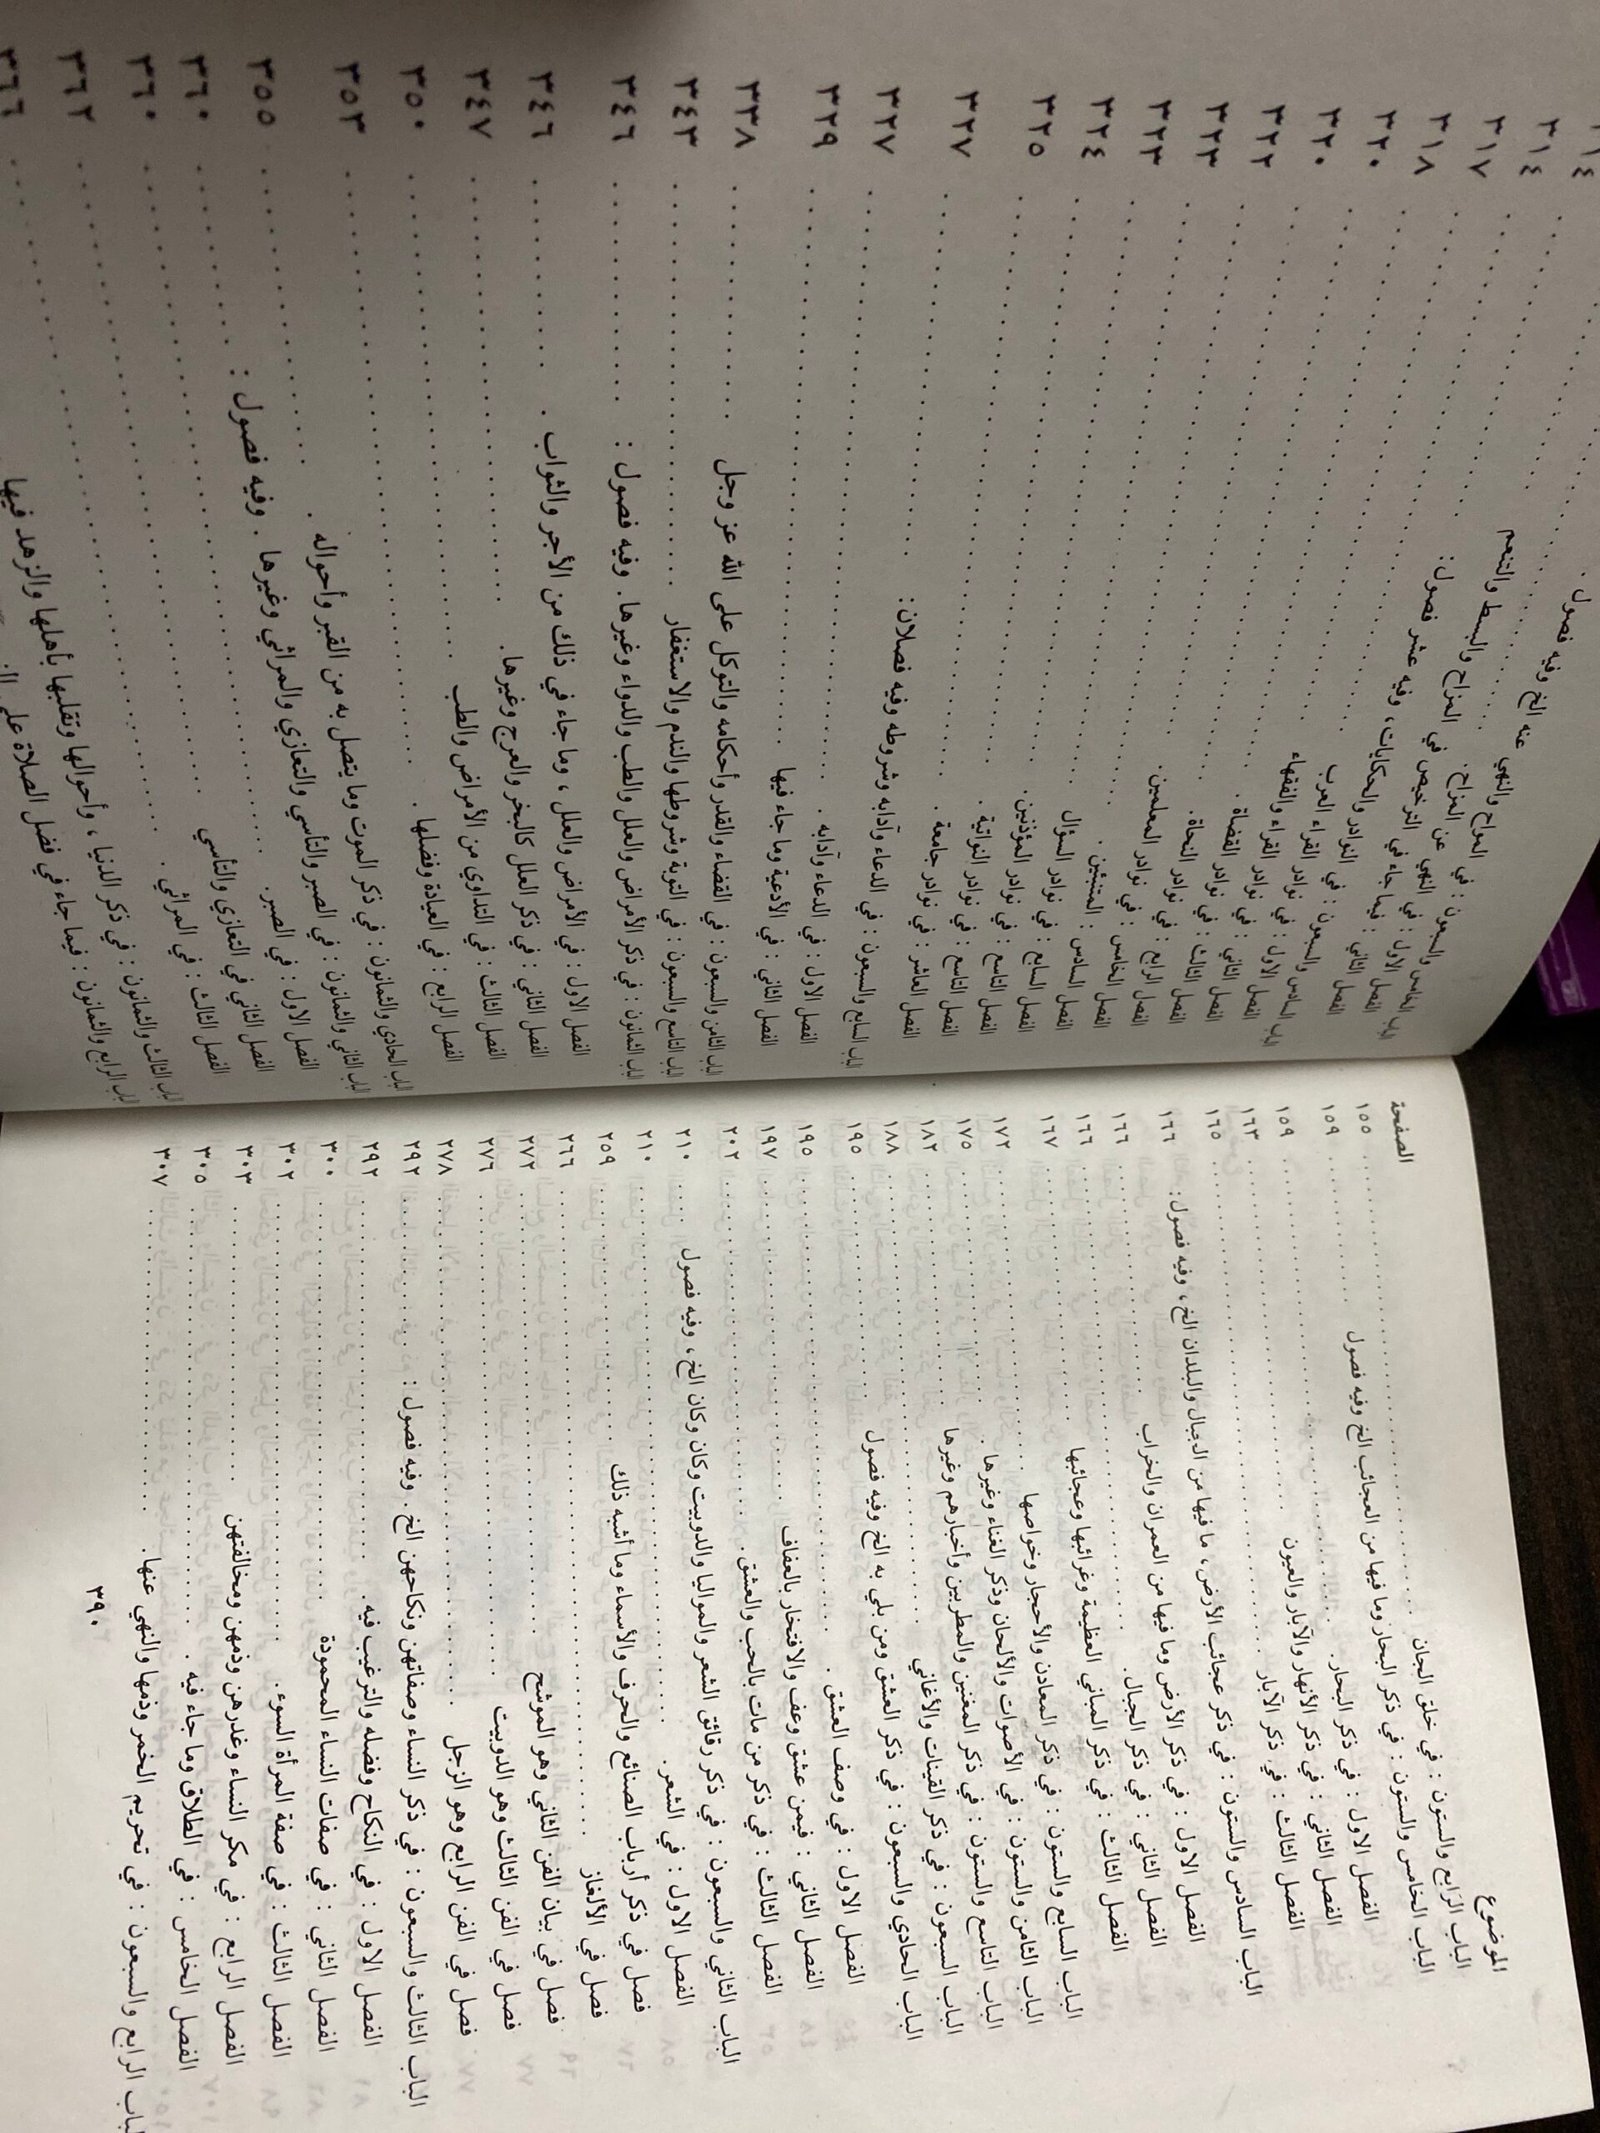 الموضوع الصفحة
الباب الرابع والستون : في خلق الجان ١٥٥
الباب الخامس والستون : في ذكر البحار وما فيها من العجائب الخ وفيه فصول ١٥٩
الفصل الاول : في ذكر البحار. ١٥٩
الفصل الثاني : في ذكر الأنهار والآبار والعيون ١٦٣
الفصل الثالث : في ذكر الآبار ١٦٥
الباب السادس والستون : في ذكر عجائب الأرض، ما فيها من الجبال والبلدان الخ، وفيه فصول: ١٦٦
الفصل الاول : في ذكر الأرض وما فيها من العمران والخراب ١٦٦
الفصل الثاني : في ذكر الجبال. ١٦٦
الفصل الثالث : في ذكر المباني العظيمة وغرائبها وعجائبها ١٦٧
الباب السابع والستون : في ذكر المعادن والأحجار وخواصها ١٧٢
الباب الثامن والستون : في الأصوات والألحان وذكر الغناء وغيرها. ١٧٥
الباب التاسع والستون : في ذكر المغنين والمطربين وأخبارهم وغيرها ١٨٢
الباب السبعون : في ذكر القينات والأغاني ١٨٨
الباب الحادي والسبعون : في ذكر العشق ومن بلي به الخ وفيه فصول ١٩٥
الفصل الاول : في وصف العشق . ١٩٥
الفصل الثاني : فيمن عشق وعف والافتخار بالعفاف ١٩٧
الفصل الثالث : في ذكر من مات بالحب والعشق. ٢٠٢
الباب الثاني والسبعون : في ذكر رقائق الشعر والمواليا والدوبيت وكان وكان الخ، وفيه فصول ٢١٠
الفصل الاول : في الشعر. ٢١٠
فصل في ذكر أرباب الصنائع والحرف والأسماء وما أشبه ذلك ٢٥٩
فصل في الألغاز ٢٦٦
فصل في بيان الفن الثاني وهو الموشح ٢٧٢
فصل في الفن الثالث وهو الدوبيت ٢٧٦
فصل في الفن الرابع وهو الزجل ٢٧٨
الباب الثالث والسبعون : في ذكر النساء وصفاتهن ونكاحهن الخ. وفيه فصول : ٢٩٢
الفصل الاول : في النكاح وفضله والترغيب فيه. ٢٩٢
الفصل الثاني : في صفات النساء المحمودة ٣٠٠
الفصل الثالث : في صفة المرأة السوء. ٣٠٢
الفصل الرابع : في مكر النساء وغدرهن وذمهن ومخالفتهن ٣٠٣
الفصل الخامس : في الطلاق وما جاء فيه . ٣٠٥
الباب الرابع والسبعون : في تحريم الخمر وذمها والنهي عنها. ٣٠٧
٣٩٠
الباب الخامس والسبعون : في المزاح والنهي عنه الخ وفيه فصول .
الفصل الاول : في النهي عن المزاح. ٣١٤
الفصل الثاني : فيما جاء في الترخيص في المزاح والبسط والتنعم ٣١٤
الباب السادس والسبعون : في النوادر والحكايات، وفيه عشر فصول:
الفصل الاول : في نوادر القراء العرب ٣١٧
الفصل الثاني : في نوادر القراء والفقهاء ٣١٨
الفصل الثالث : في نوادر القضاة . ٣٢٠
الفصل الرابع : في نوادر النحاة. ٣٢٠
الفصل الخامس : في نوادر المعلمين. ٣٢٢
الفصل السادس : المتنبئين . ٣٢٣
الفصل السابع : في نوادر السؤال ٣٢٣
الفصل التاسع : في نوادر المؤذنين. ٣٢٤
الفصل التاسع : في نوادر النواتية. ٣٢٥
الفصل العاشر : في نوادر جامعة. ٣٢٧
الباب السابع والسبعون : في الدعاء وآدابه وشروطه وفيه فصلان:
الفصل الاول : في الدعاء وآدابه . ٣٢٧
الفصل الثاني : في الأدعية وما جاء فيها ٣٢٩
الباب الثامن والسبعون : في القضاء والقدر وأحكامه والتوكل على الله عز وجل ٣٣٨
الباب التاسع والسبعون : في التوبة وشروطها والندم والاستغفار ٣٤٣
الباب الثمانون : في ذكر الأمراض والعلل والطب والدواء وغيرها. وفيه فصول :
الفصل الاول : في الأمراض والعلل ، وما جاء في ذلك من الأجر والثواب . ٣٤٦
الفصل الثاني : في ذكر العلل كالبخر والعرج وغيرها. ٣٤٦
الفصل الثالث : في التداوي من الأمراض والطب ٣٤٧
الفصل الرابع : في العيادة وفضلها. ٣٥٠
الباب الحادي والثمانون : في ذكر الموت وما يتصل به من القبر وأحواله . ٣٥٣
الباب الثاني والثمانون : في الصبر والتأسي والتعازي والمراثي وغيرها . وفيه فصول :
الفصل الاول : في الصبر. ٣٥٥
الفصل الثاني في التعازي والتأسي ٣٦٠
الفصل الثالث : في المراثي . ٣٦٠
الباب الثالث والثمانون : في ذكر الدنيا ، وأحوالها وتقلبها بأهلها والزهد فيها ٣٦٢
الباب الرابع والثمانون : فيما جاء في فضل الصلاة على ٣٦٦